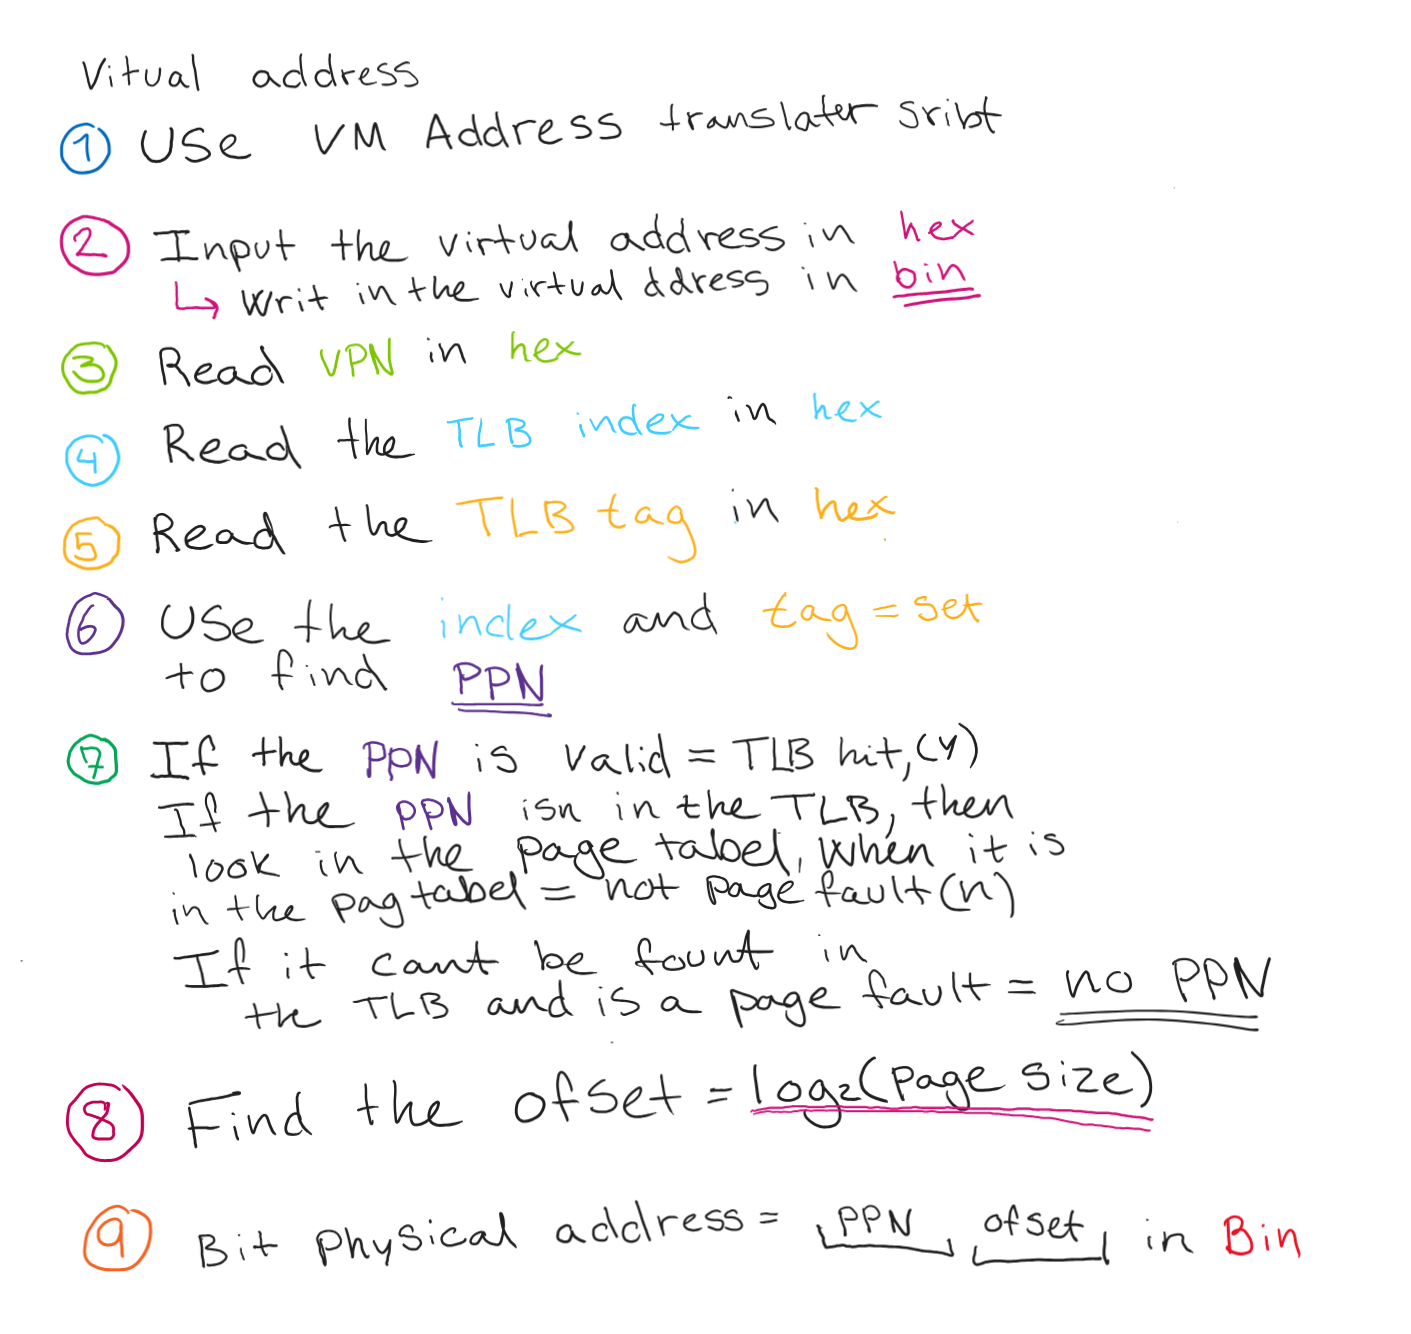 Vitual address
① Use VM Address translater sribt
② Input the virtual address in hex
↳ Writ in the virtual ddress in bin
③ Read VPN in hex
④ Read the TLB index in hex
⑤ Read the TLB tag in hex
⑥ Use the index and tag = set
to find PPN
⑦ If the PPN is valid = TLB hit, (y)
If the PPN isn in the TLB, then
look in the page tabel, when it is
in the pag tabel = not page fault (n)
If it cant be fount in
the TLB and is a page fault = no PPN
⑧ Find the ofset = log2(page size)
⑨ Bit physical address = PPN ofset in Bin